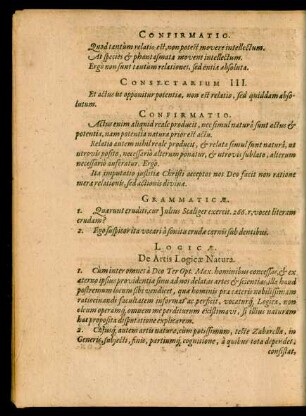 CONFIRMATIO.
Quod tantùm relatio est, non potest movere intellectum.
At species & phantasmata movent intellectum.
Ergò non sunt tantùm relationes, sed entia absoluta.
CONSECTARIUM III.
Et actus ut opponitur potentiæ, non est relatio, sed quiddam abso-
lutum.
CONFIRMATIO.
Actus enim aliquid reale producit, nec simul naturâ sunt actus &
potentia, nam potentia naturâ prior est actu.
Relatio autem nihil reale producit, & relata simul sunt naturâ, ut
utrovis posito, necessariò alterum ponatur, & utrovis sublato, alterum
necessariò auferatur. Ergò.
Ita imputatio justitiæ Christi acceptos nos Deo facit non ratione
meræ relationis, sed actionis divinæ.
GRAMMATICÆ.
1. Quærunt eruditi, cur Julius Scaliger exercit. 286. vocet literam
crudam?
2. Ego suspicor ita vocari à sonitu crudæ carnis sub dentibus.
LOGICÆ
De Artis Logicæ Natura.
1. Cum inter omnes à Deo Ter Opt. Max. hominibus concessas, & ex
æterno ipsius providentiæ sinu ad nos delatas artes & scientias, illæ haud
postremum locum sibi vendicet, quæ hominis præ cæteris nobilissimam
ratiocinandi facultatem informat ac perficit, vocaturq́; Logica, non
oleum operamq́; omnem me perditurum existimavi, si illius naturam
hac proposita disputatione explicarem.
2. Cujusq́; autem artis natura, cum potissimum, teste Zabarella, in
Generis, subjecti, finis, partiumq́; cognitione, à quibus tota dependet,
consistat,